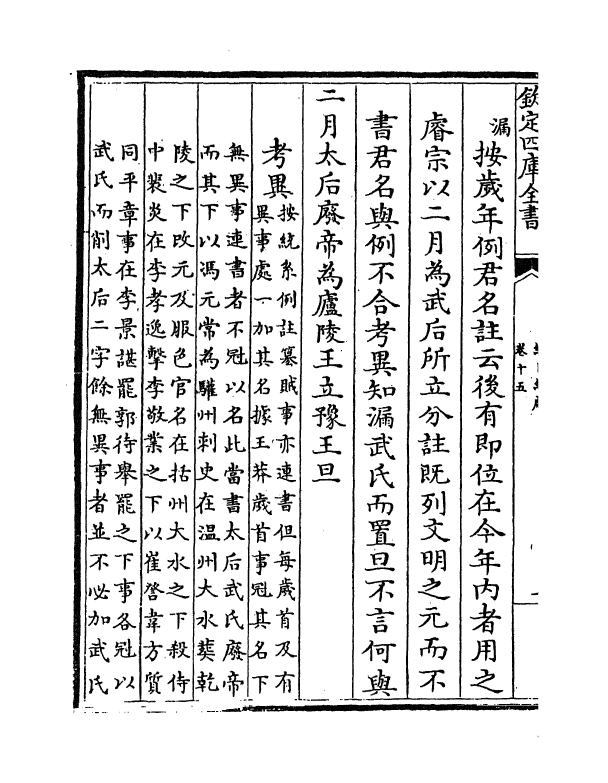 欽定四庫全書
卷十五
漏
按歲年例君名註云後有即位在今年内者用之
睿宗以二月為武后所立分註既列文明之元而不
書君名與例不合考異知漏武氏而置旦不言何與
二月太后廢帝為廬陵王立豫王旦
考異按統系例註簒賊事亦連書但每歲首及有
異事處一加其名據王莽歲首事冠其名下
無異事連書者不冠以名此當書太后武氏廢帝
而其下以馮元常為驩州刺史在温州大水葬乾
陵之下改元及服色官名在括州大水之下殺侍
中裴炎在李孝逸擊李敬業之下以崔詧韋方質
同平章事在李景諶罷郭待舉罷之下事各冠以
武氏而削太后二字餘無異事者並不必加武氏